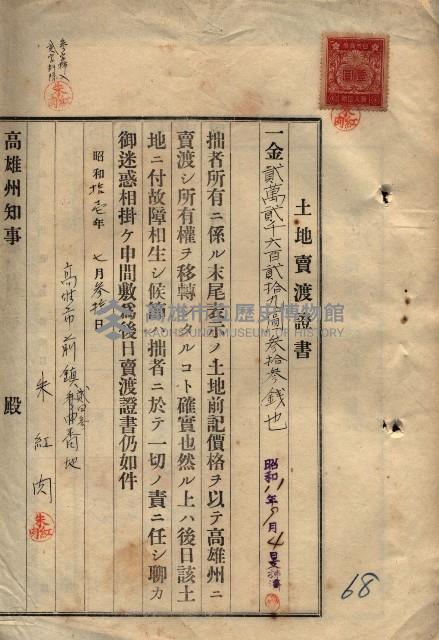 土地賣渡證書
一金貳萬貳千六百貳拾九圓參拾參錢也
昭和11年9月4日
拙者所有ニ係ル末尾表示ノ土地前記價格ヲ以テ高雄州ニ
賣渡シ所有權ヲ移轉シタルコト確實也然ル上ハ後日該土
地ニ付故障相生シ候節ハ拙者ニ於テ一切ノ責ニ任シ聊カ
御迷惑相掛ケ申間敷為後日賣渡證書仍如件
昭和拾壱年 七月參拾日
高雄市前鎮
番地
朱紅肉
高雄州知事 殿
朱紅肉
68
高雄市立歷史博物館
KAOHSIUNG MUSEUM OF HISTORY